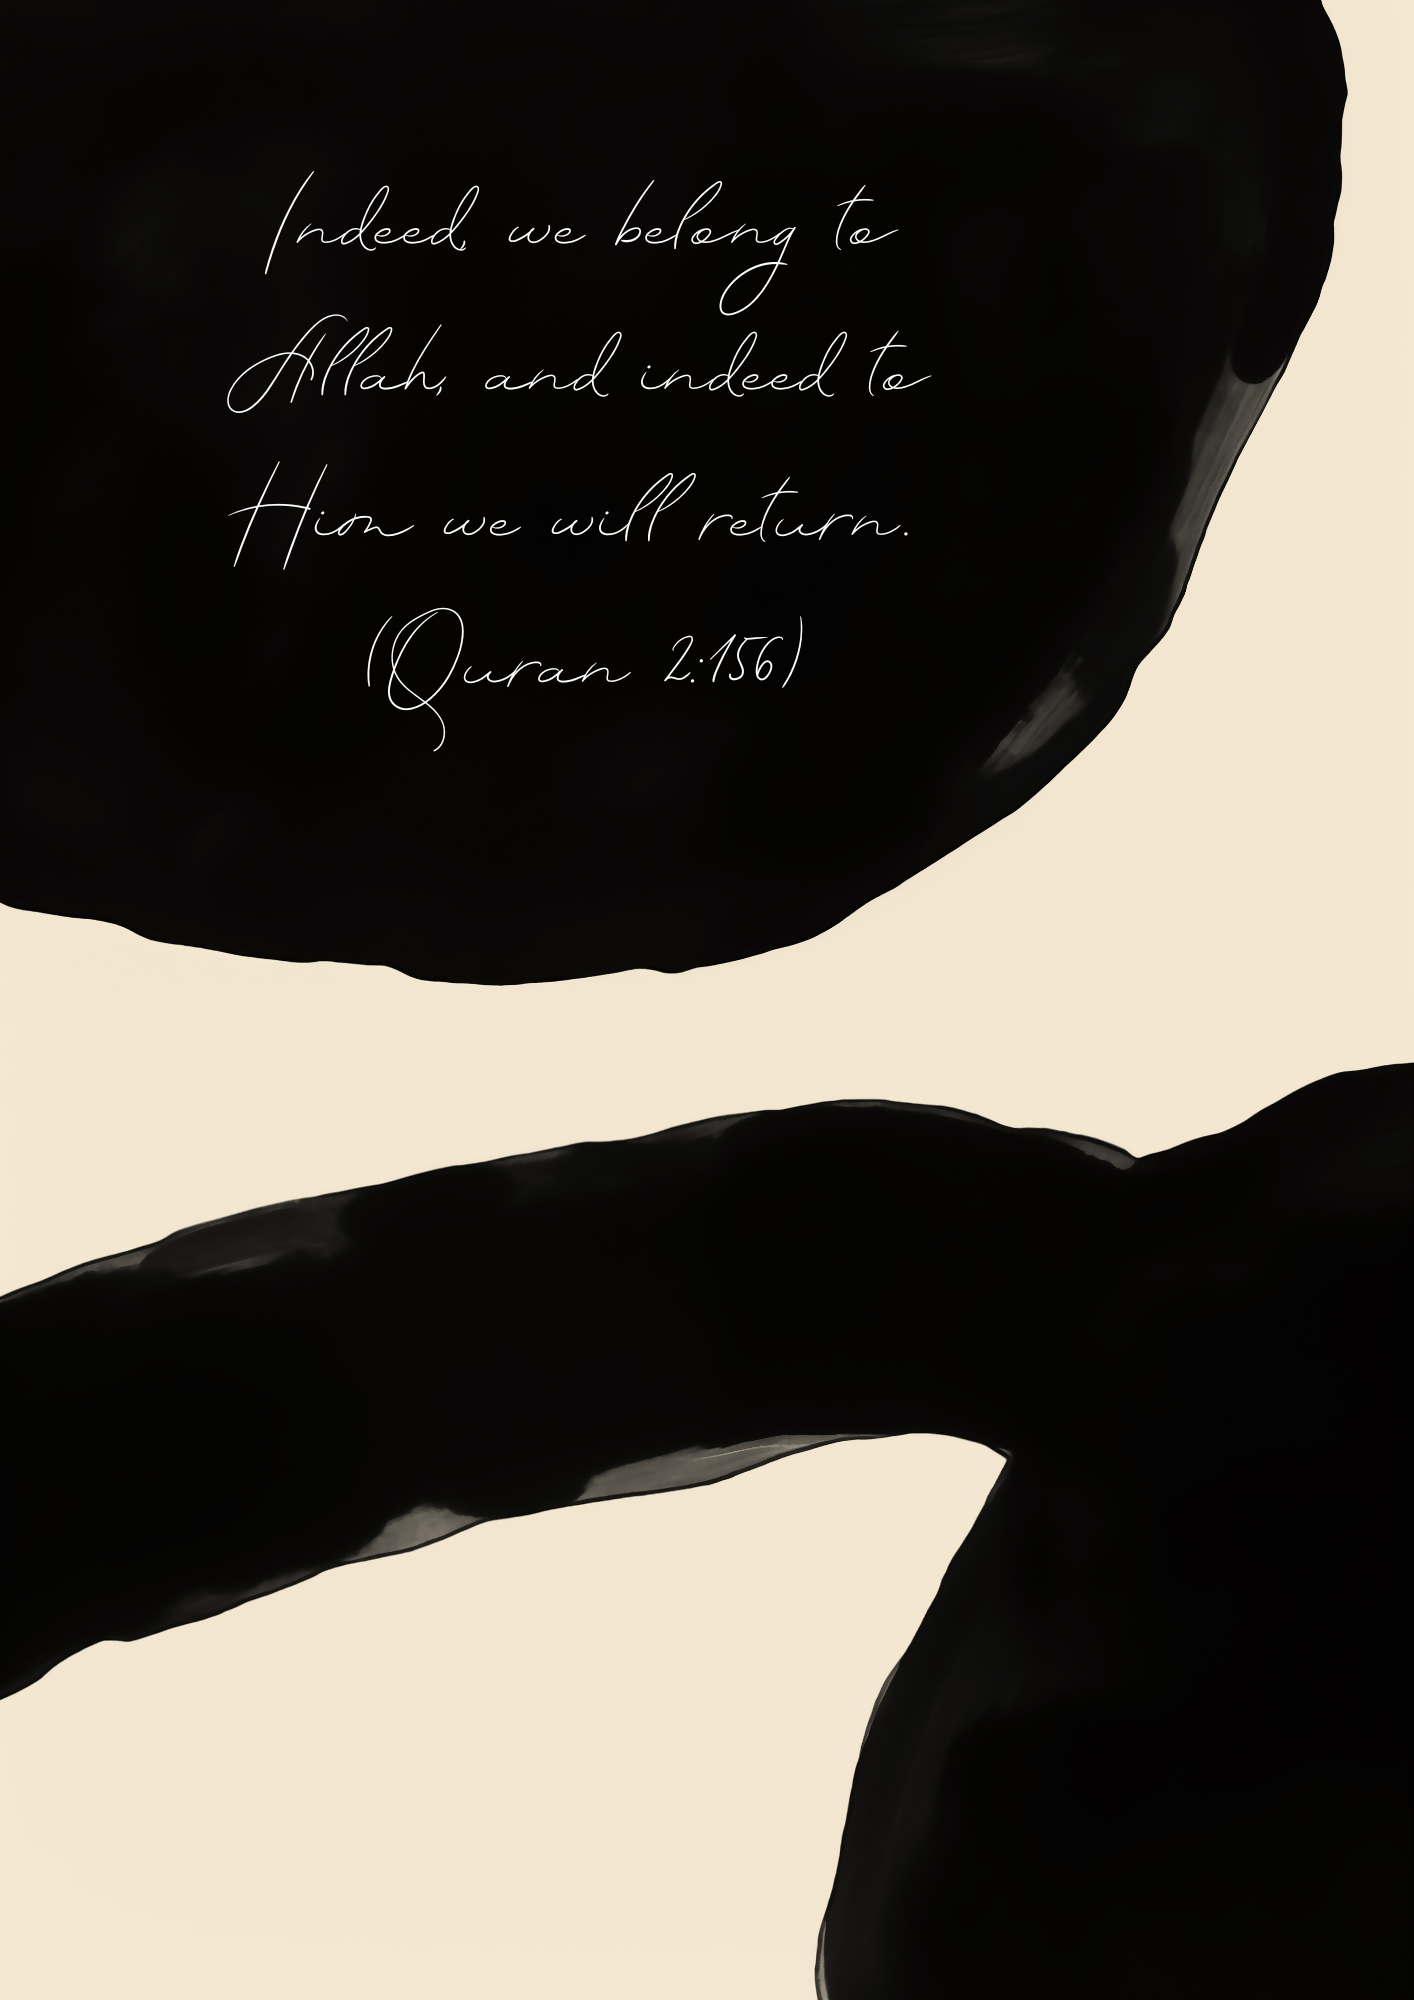 Indeed, we belong to
Allah, and indeed to
Him we will return.
(Quran 2:156)